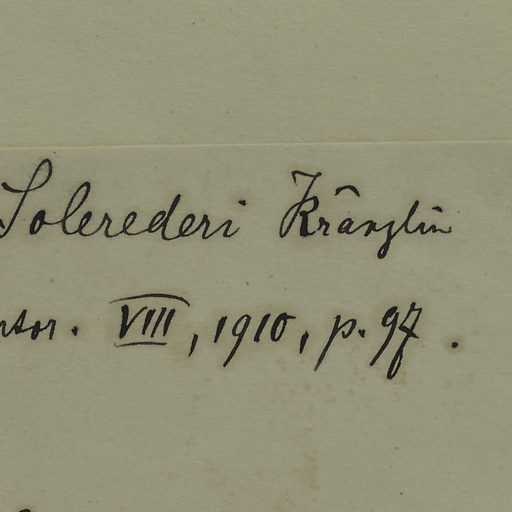 Solerederi Kränzlin
VIII, 1910, p. 97.